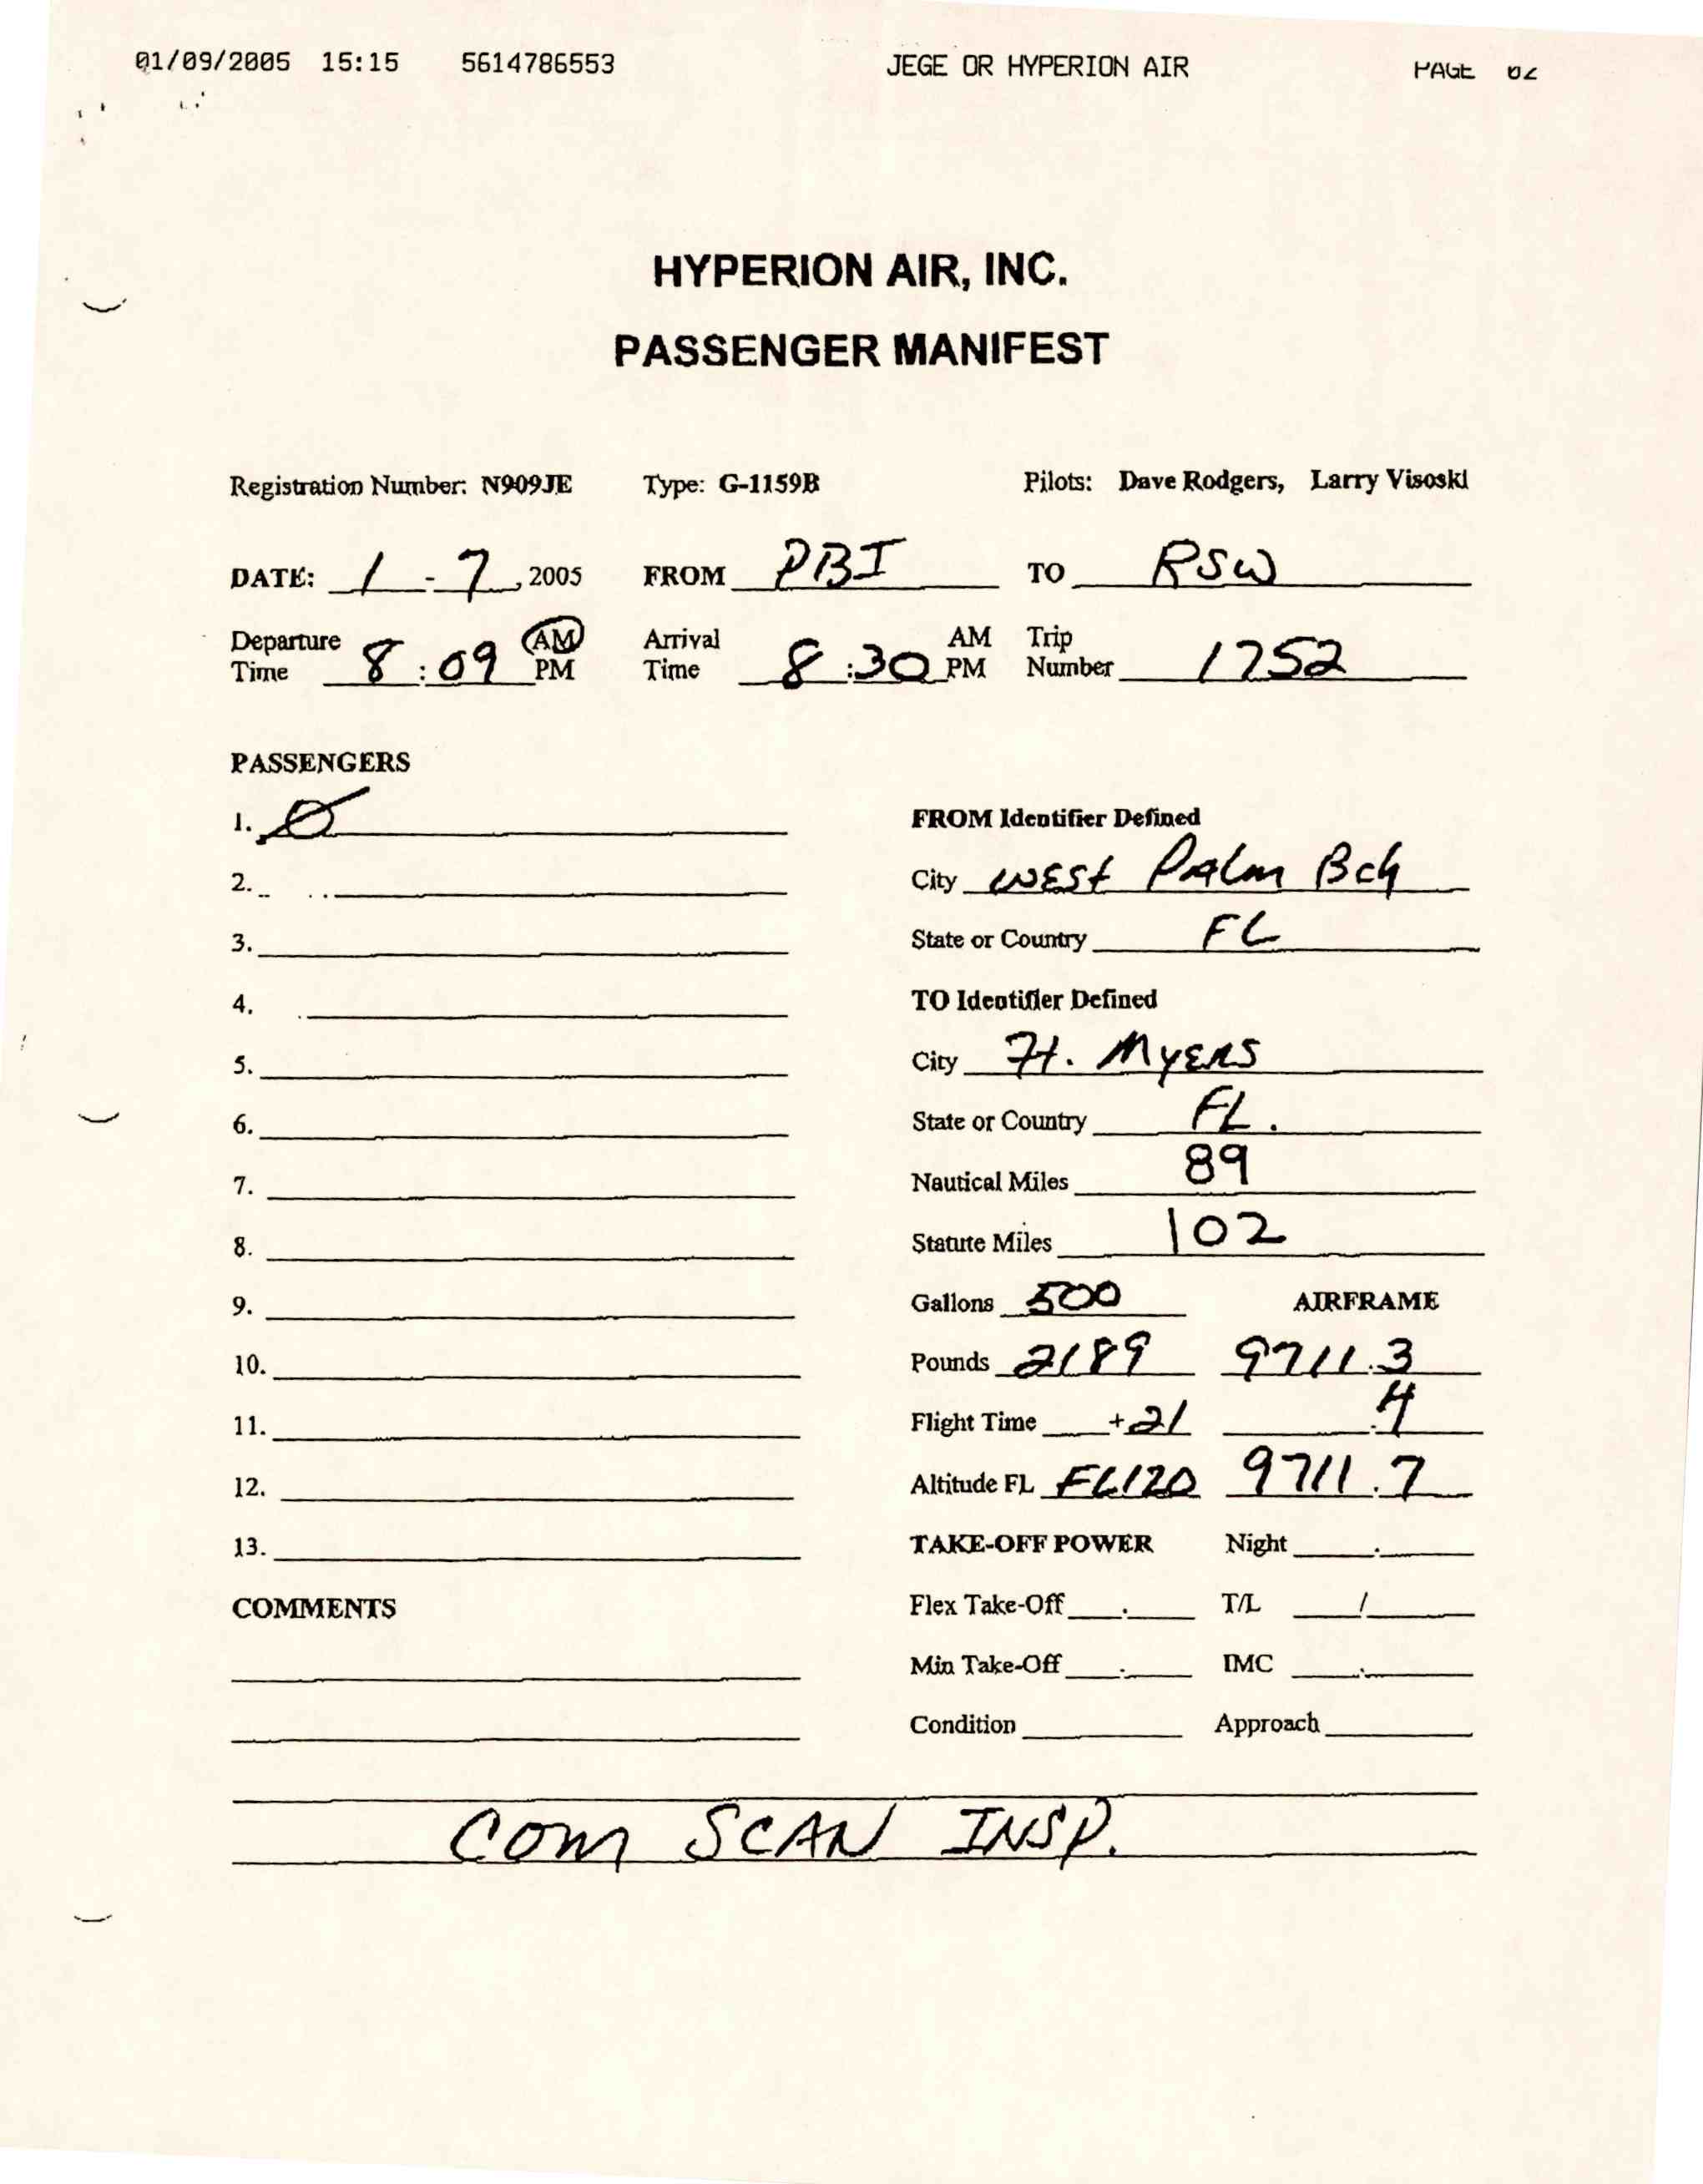 01/09/2005 15:15 5614786553 JEGE OR HYPERION AIR PAGE 02
HYPERION AIR, INC.
PASSENGER MANIFEST
Registration Number: N909JE Type: G-1159B Pilots: Dave Rodgers, Larry Visoski
DATE: 1-7, 2005 FROM PBI TO RSW
Departure Time 8:09 AM PM Arrival Time 8:30 AM PM Trip Number 1752
PASSENGERS
1. Ø
2.
3.
4.
5.
6.
7.
8.
9.
10.
11.
12.
13.
COMMENTS
FROM Identifier Defined
City WEST PALM Bch
State or Country FL
TO Identifier Defined
City Ft. MYERS
State or Country FL.
Nautical Miles 89
Statute Miles 102
Gallons 500 AIRFRAME
Pounds 2189 9711.3
Flight Time +21 .4
Altitude FL FL120 9711.7
TAKE-OFF POWER Night .
Flex Take-Off . T/L /
Min Take-Off . IMC .
Condition Approach
COM SCAN INSP.